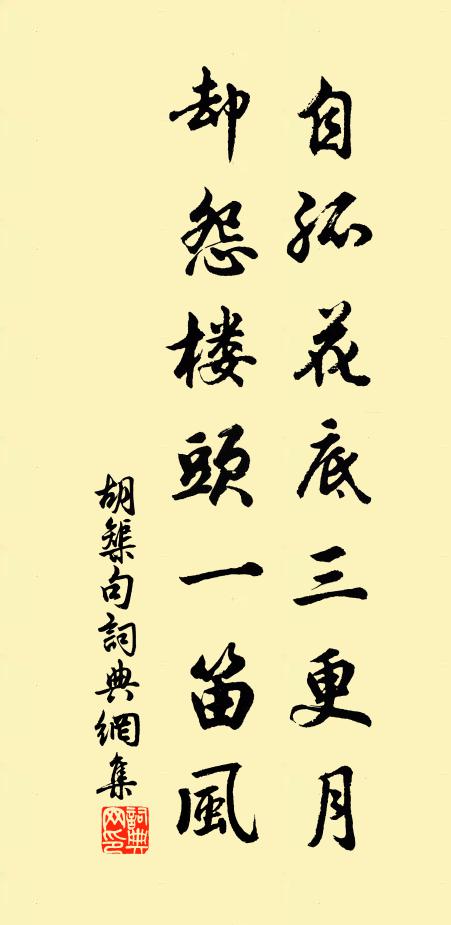 自孤花底三更月
却怨楼頭一笛風
胡榘句詞典網集
詞典網印